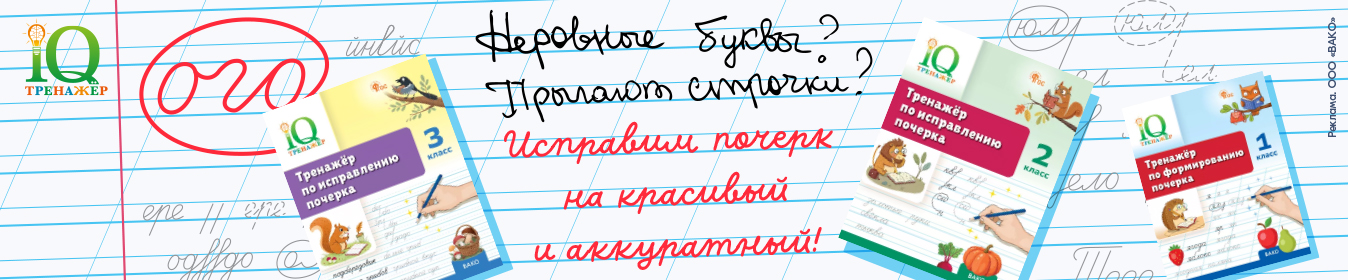 IQ
ТРЕНАЖЁР
ого
йнвйс
Неровные буквы?
Прыгают строчки?
Исправим почерк
на красивый
и аккуратный!
IQ
ТРЕНАЖЁР
3
класс
Тренажёр
по исправлению
почерка
ВАКО
IQ
ТРЕНАЖЁР
2
класс
Тренажёр
по исправлению
почерка
ВАКО
IQ
ТРЕНАЖЁР
1
класс
Тренажёр
по формированию
почерка
ВАКО
ере
ел
Реклама. ООО «ВАКО»